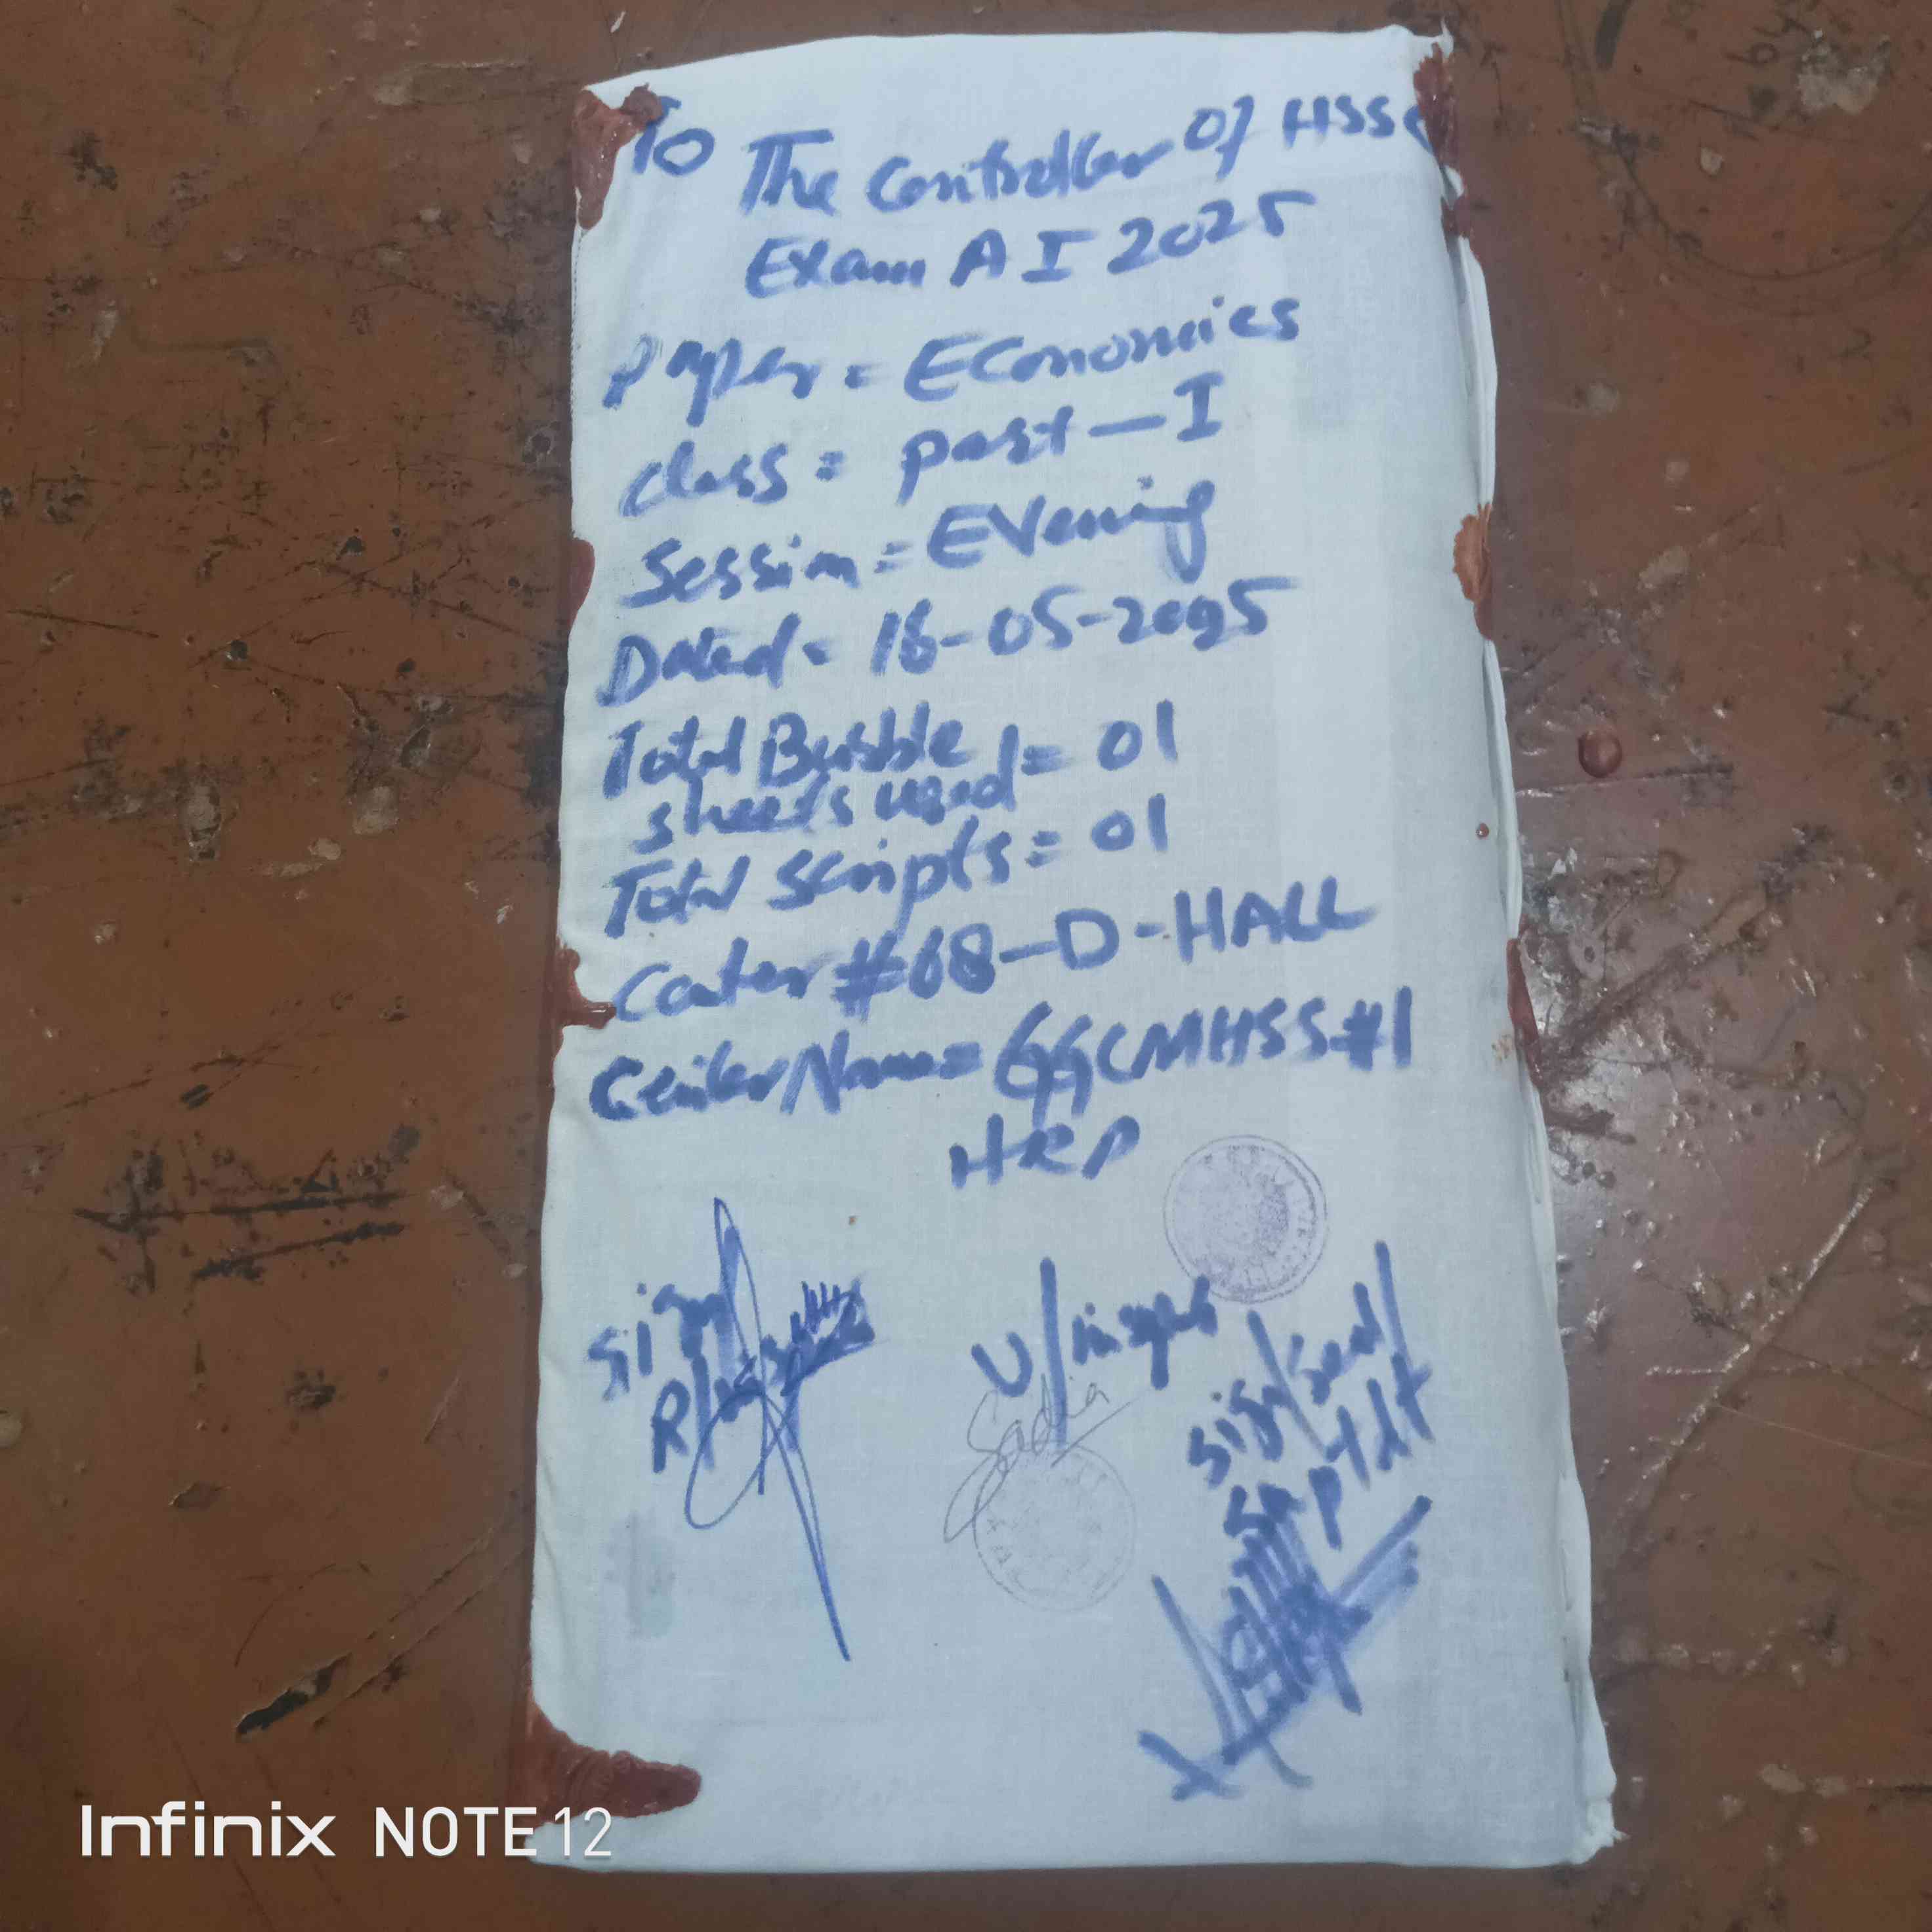 To
The Controller of HSSC
Exam A I 2025
Paper = Economics
class = part - I
Session = Evening
Dated = 16-05-2025
Total Bubble
sheets used = 01
Total scripts = 01
Center #68-D-HALL
Center Name = GGCMHSS#1
HRP
sign
R/
U/
Sadia
sign/seal/
Suptdt
Infinix NOTE 12